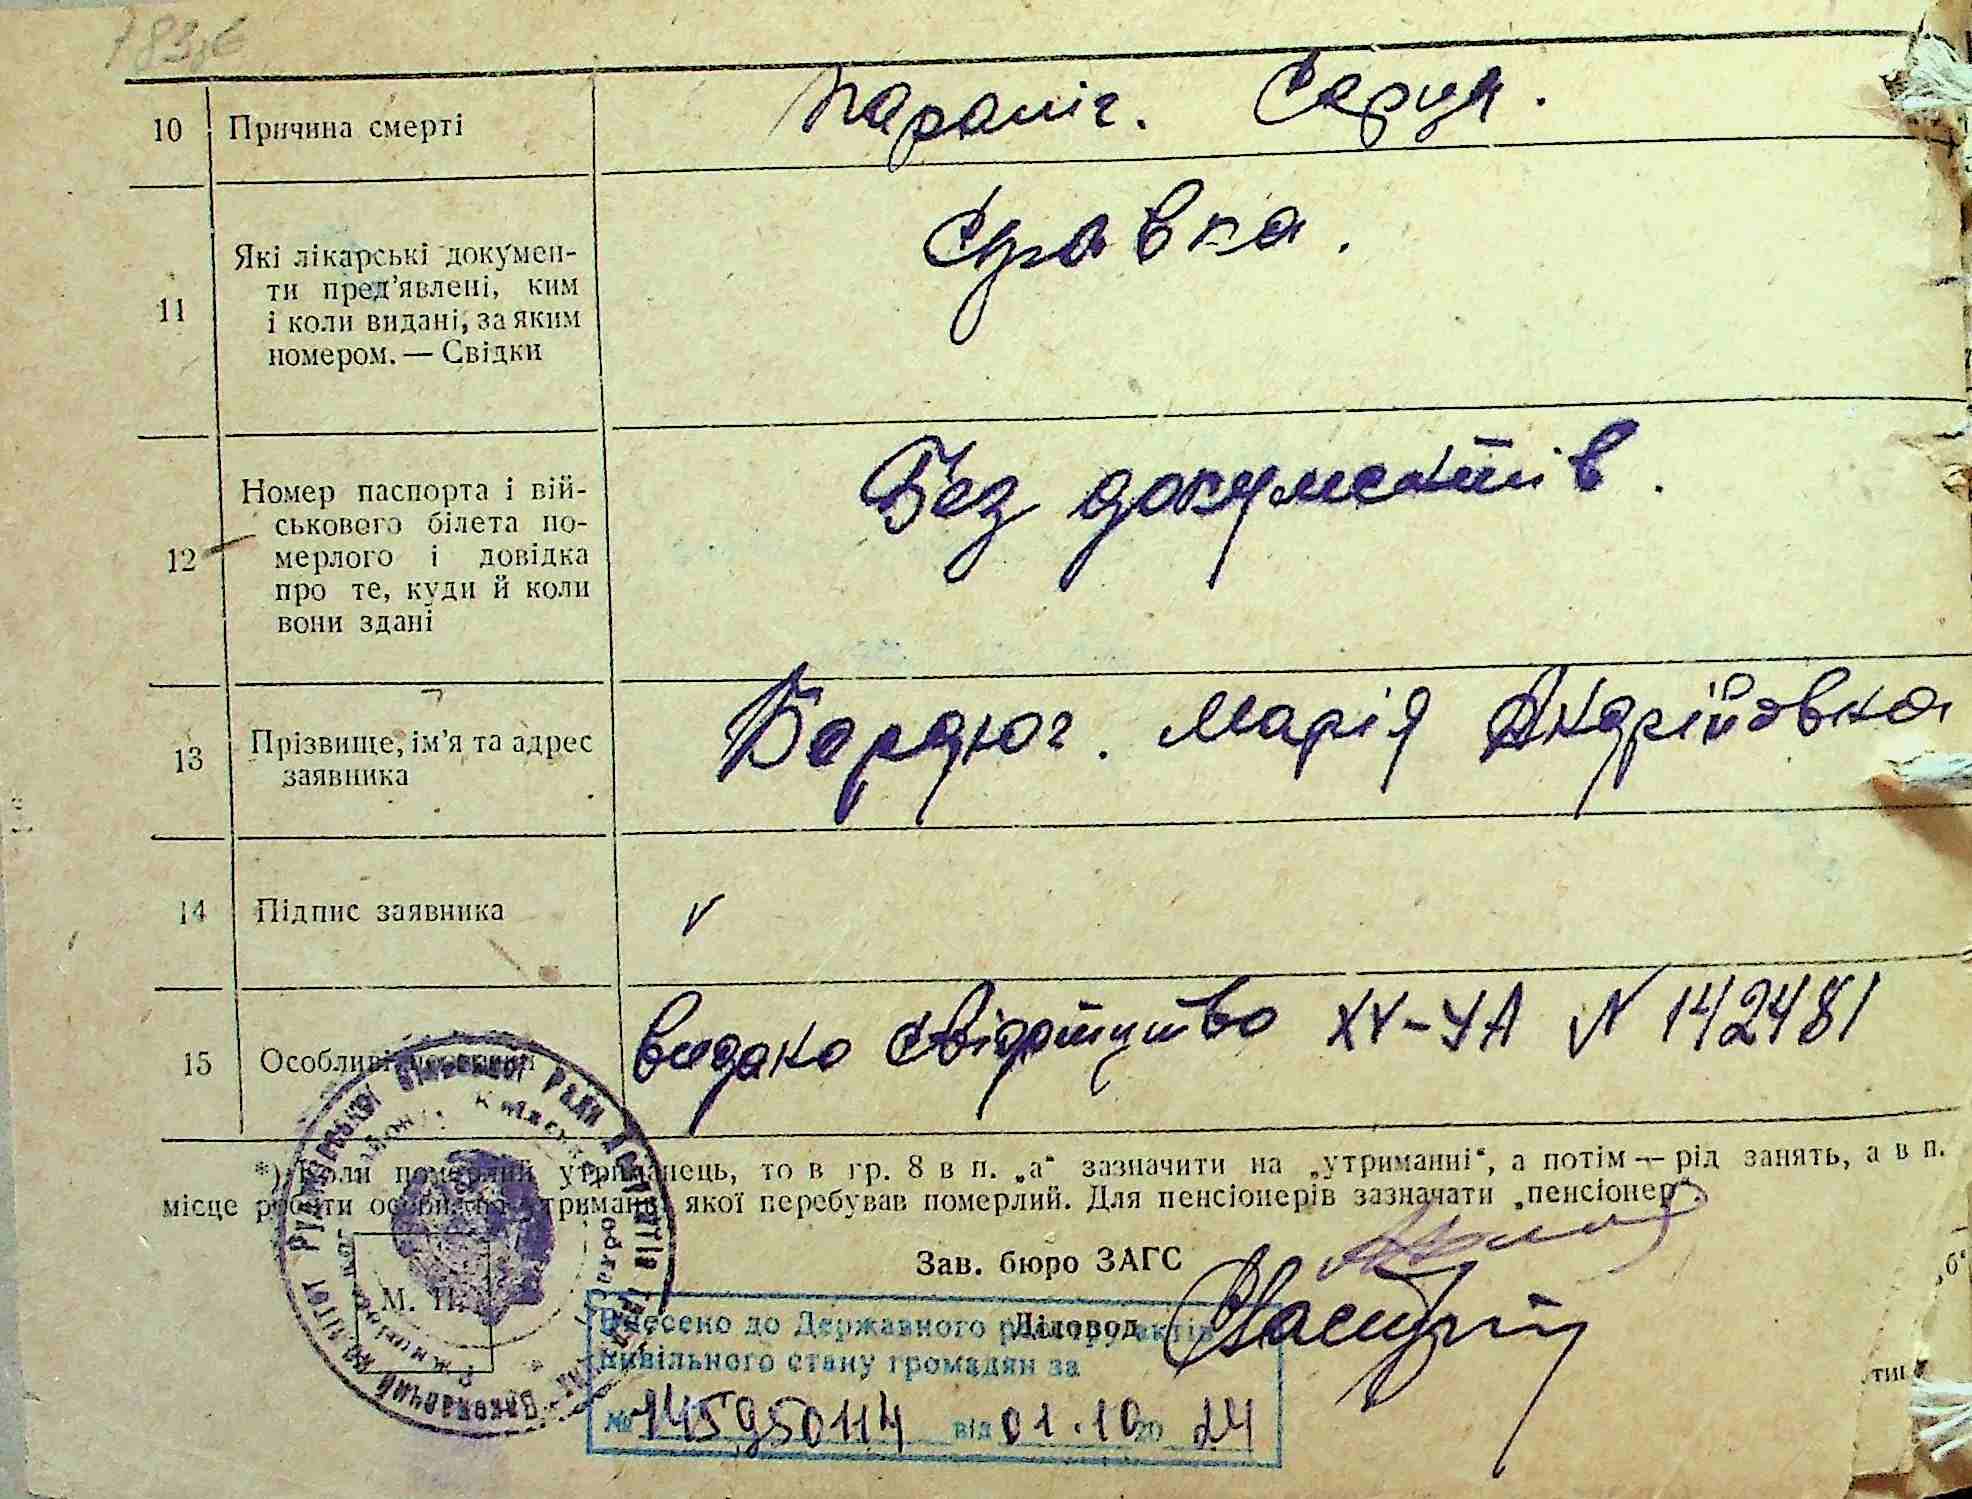 10 Причина смерті Параліч. Серця.
11 Які лікарські докумен-
ти пред'явлені, ким
і коли видані, за яким
номером. — Свідки
Справка.
12 Номер паспорта і вій-
ськового білета по-
мерлого і довідка
про те, куди й коли
вони здані
Без документів.
13 Прізвище, ім'я та адрес
заявника
Бердюг. Марія Андріївна
14 Підпис заявника v
15 Особливі
видано свідотцтво XV-УА N 142481
*) Коли померлий утриманець, то в гр. 8 в п. „а" зазначити на „утриманні", а потім — рід занять, а в п.
місце роботи особи, на утриманні якої перебував померлий. Для пенсіонерів зазначати „пенсіонер".
Зав. бюро ЗАГС
М. П.
Діловод
Внесено до Державного реєстру актів
цивільного стану громадян за
№ 145950114 від 01.10 20 24